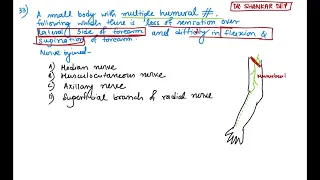 DR SHANKAR DEV
33) A small body with multiple humeral #.
following which there is loss of sensation over
lateral side of forearm and difficulty in flexion &
supination of forearm
Nerve injured-
A) Median nerve
B) Musculocutaneous nerve
C) Axillary nerve
D) Superficial branch of radial nerve